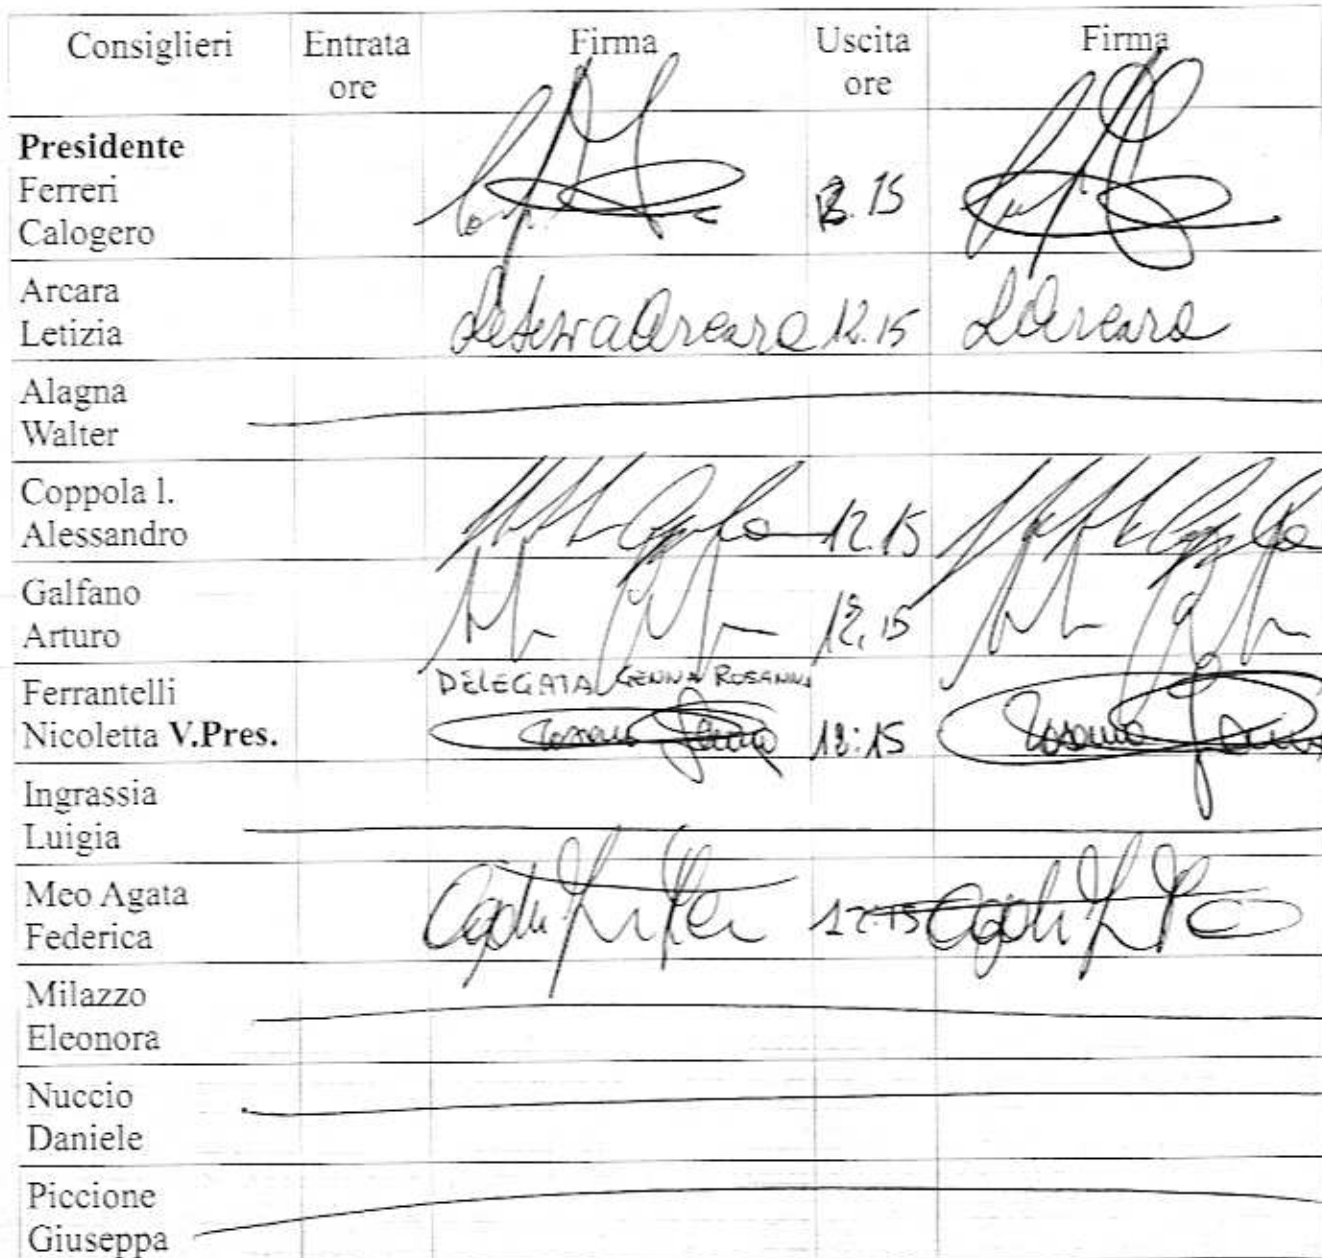 Consiglieri Entrata ore Firma Uscita ore Firma
Presidente
Ferreri
Calogero
Arcara
Letizia Letizia Arcara 12.15 L Arcara
Alagna
Walter
Coppola l.
Alessandro 12.15
Galfano
Arturo 12.15
Ferrantelli DELEGATA GENNA ROSANNA
Nicoletta V.Pres. Rosanna Genna 12:15 Rosanna Genna
Ingrassia
Luigia
Meo Agata
Federica 12:15
Milazzo
Eleonora
Nuccio
Daniele
Piccione
Giuseppa